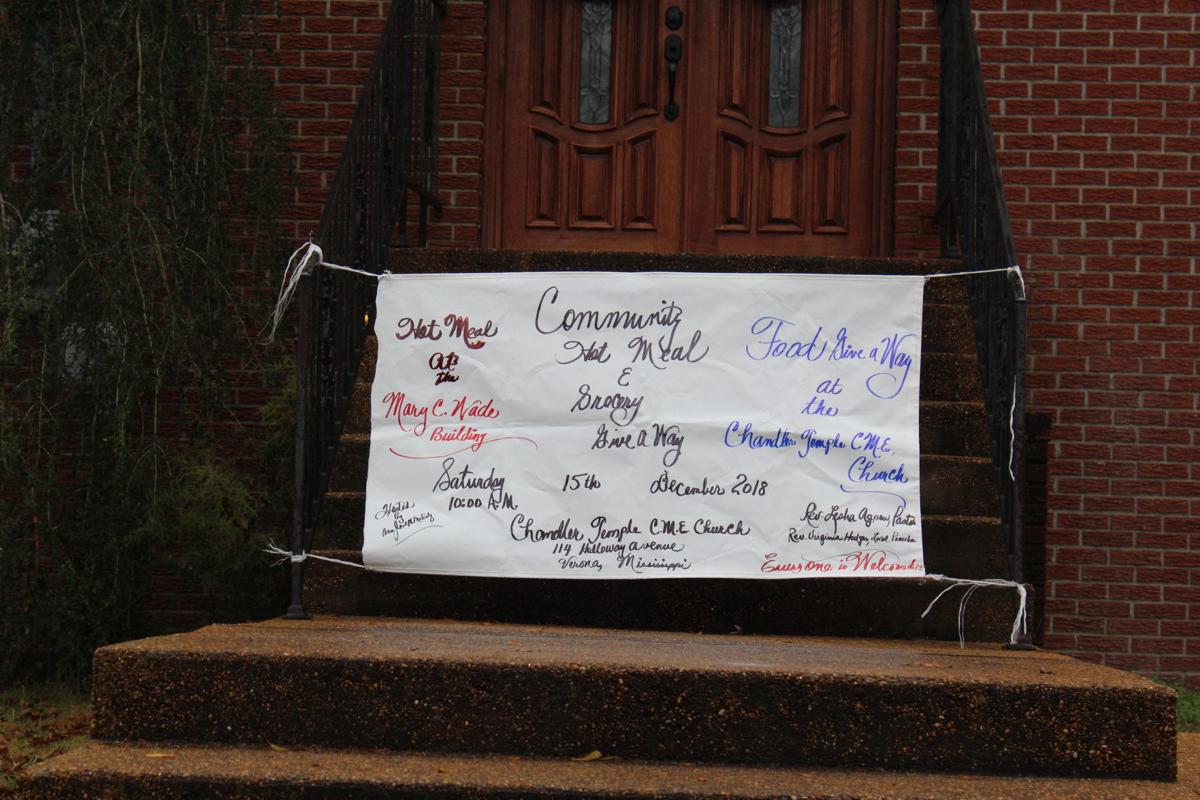 Hot Meal
at
the
Mary C. Wade
Building
Community
Hot Meal
&
Grocery
Give a Way
Food Give a Way
at
the
Chandler Temple C.M.E.
Church
Saturday 15th December 2018
10:00 A.M.
Hosted
by
Chandler Temple C.M.E Church
114 Holloway avenue
Verona, Mississippi
Rev. Agnew, Pastor
Rev. Virginia Hodges, Local
Everyone is Welcomed!!